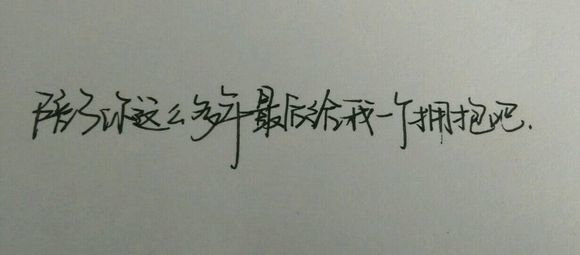 陪了你这么多年最后给我一个拥抱吧.